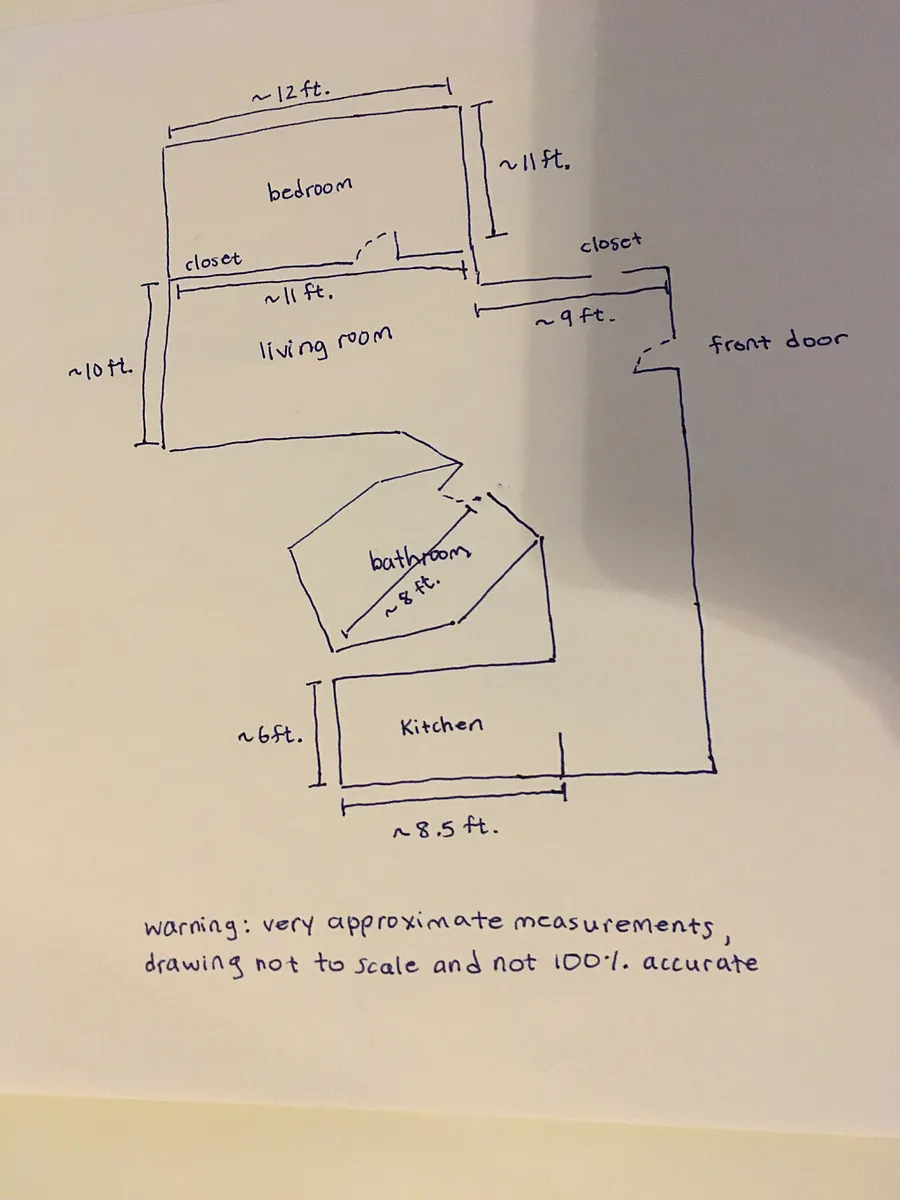 ~12 ft.
~11 ft.
bedroom
closet
closet
~11 ft.
~9 ft.
living room
front door
~10 ft.
bathroom
~8 ft.
Kitchen
~6ft.
~8.5 ft.
warning: very approximate measurements,
drawing not to scale and not 100% accurate